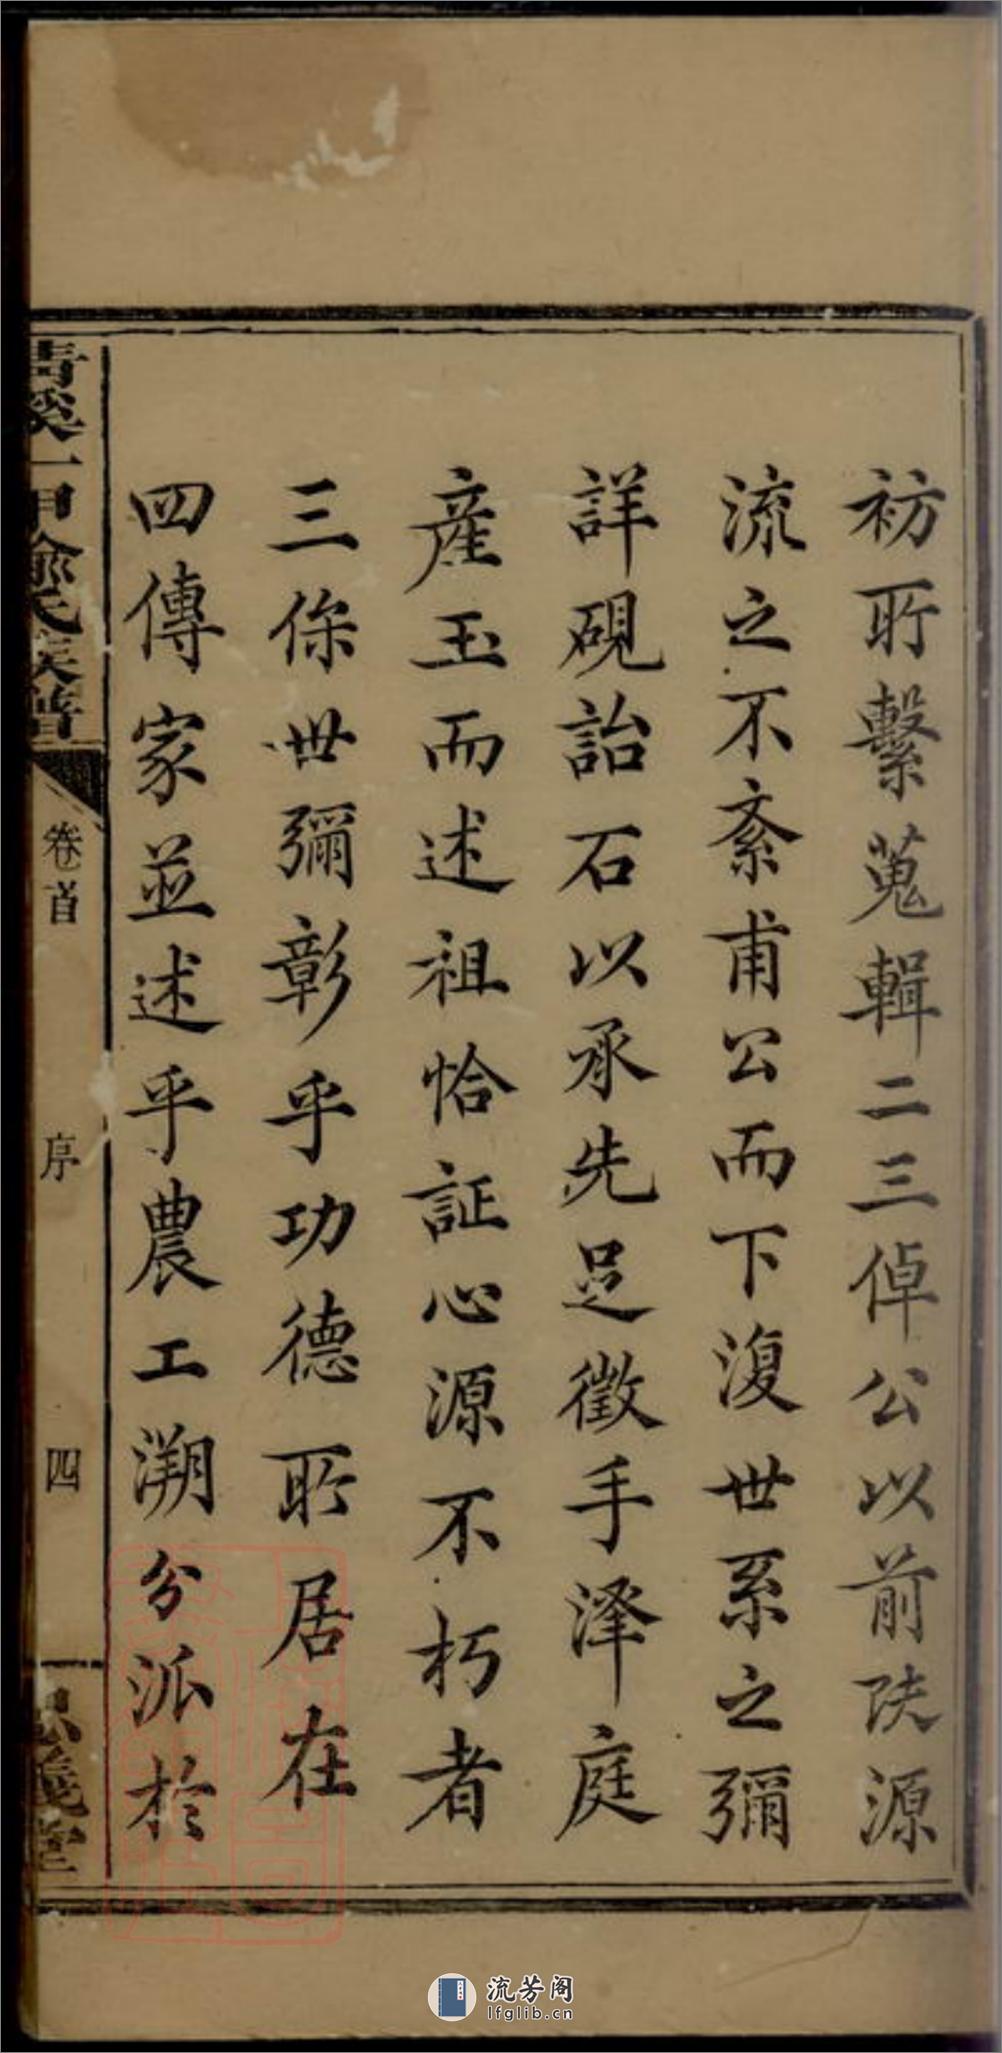 礽所繫蒐輯二三倬公以前陕源
流之不紊甫公而下復世系之彌
詳硯詒石以承先足徵手澤庭
産玉而述祖恰証心源不朽者
三條世彌彰乎功德所居在
四傳家並述乎農工溯分派於
青溪一甲俞氏族譜
卷首
序
四
思義堂
流芳阁
lfglib.cn